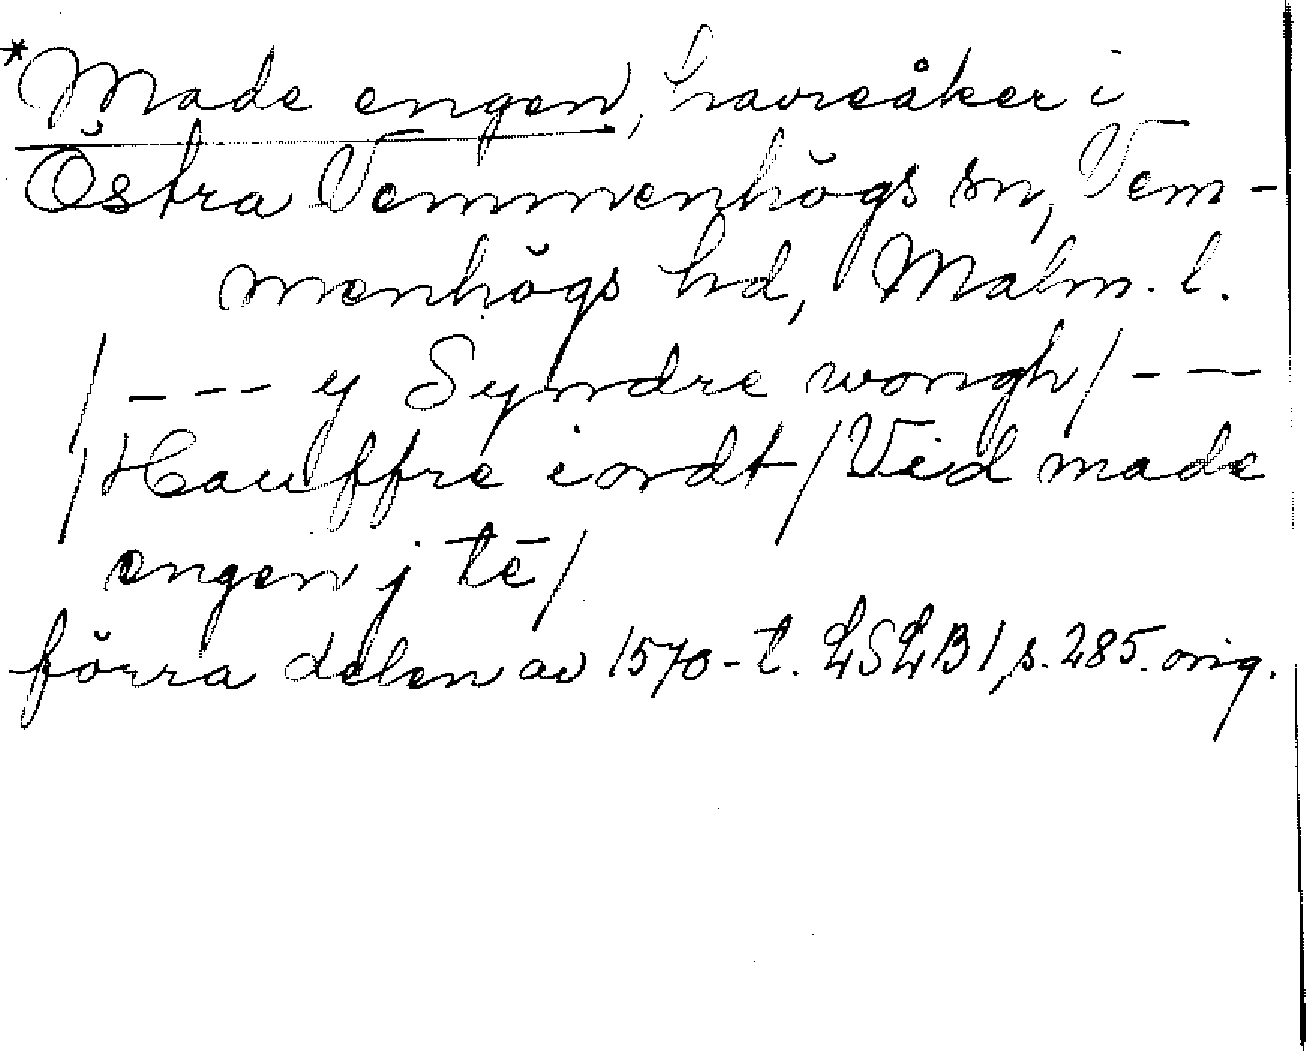 *Made engen, havreåker i
Östra Vemmenhögs sn, Vem-
menhögs hd, Malm. l.
/--- y Syndre wongh/---
/Hauffre iordt/Vid made
engen j tē/
förra delen av 1570-t. LSLB1, s. 285. orig.